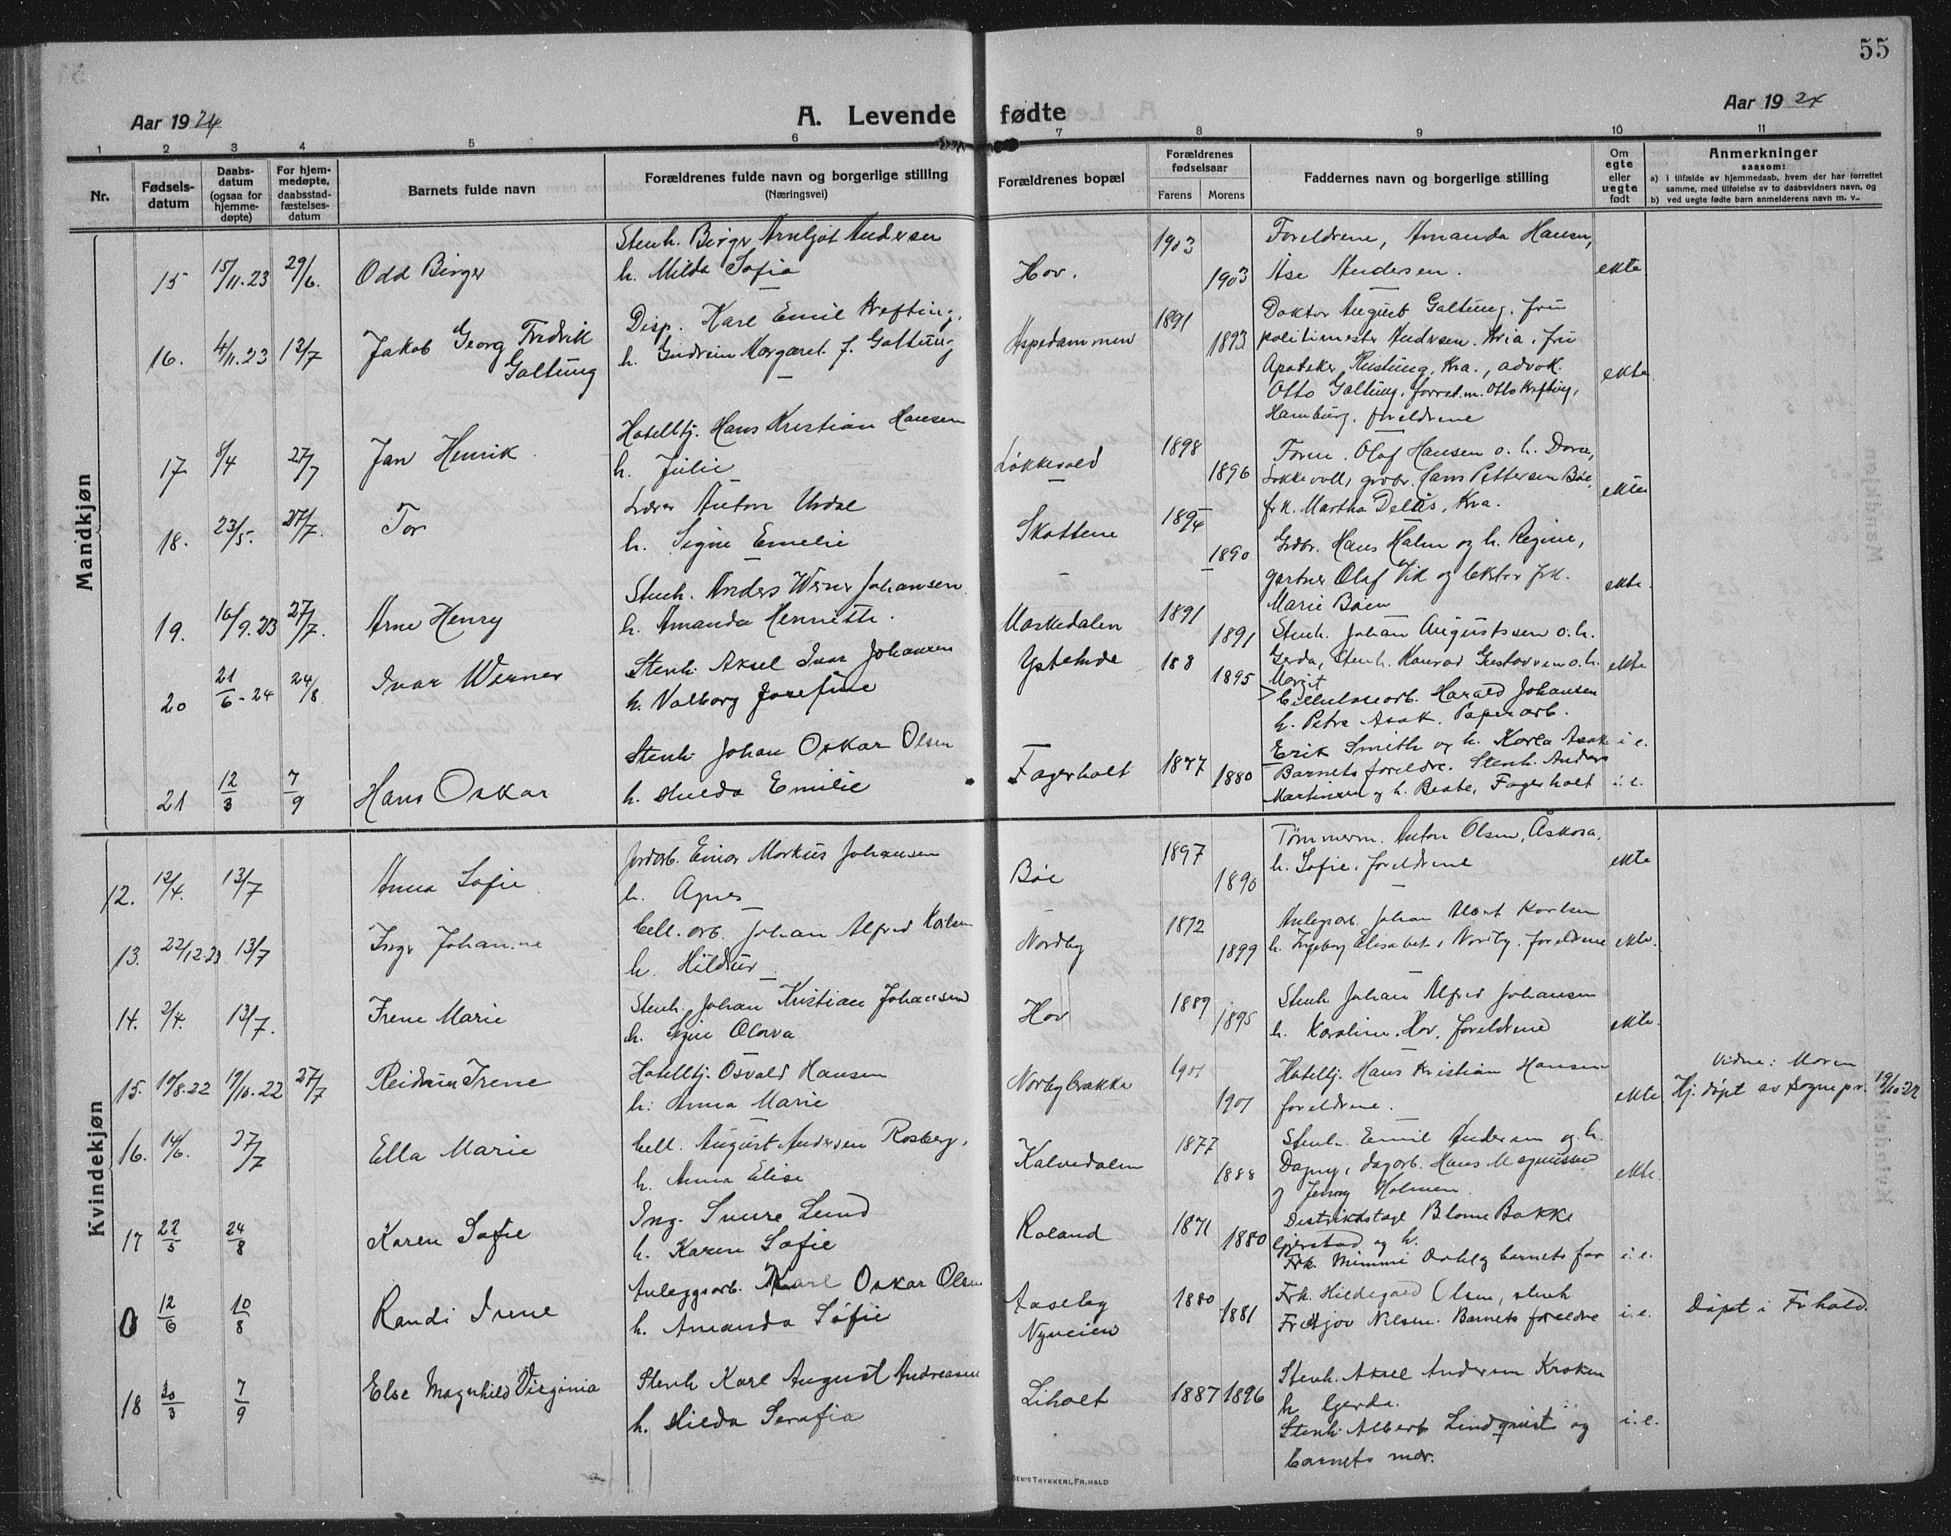 55
Aar 1924
A. Levende fødte
Aar 1924
1 2 3 4 5 6 7 8 9 10 11
Nr.
Fødsels-
datum
Daabs-
datum
(ogsaa for
hjemme-
døpte)
For hjem-
medøpte,
daabsstad-
fæstelses-
datum
Barnets fulde navn
Forældrenes fulde navn og borgerlige stilling
(Næringsvei)
Forældrenes bopæl
Forældrenes
fødselsaar
Farens Morens
Faddernes navn og borgerlig stilling
Om
egte
eller
uegte
født
Anmerkninger
saasom:
a) i tilfælde av hjemmedaab, hvem der har forrettet
samme, med tilføielse av to daabsvidners navn, og
b) ved uegte fødte barn anmelderens navn m. v..
Mandkjøn
15 15/11.23 29/6. Odd Birger
Stenh. Birger Arnljot Andersen
h. Milda Sofia
Hov. 1903 1903
Foreldrene, Amanda Hansen,
Åse Andersen.
ekte
16. 4/11.23 13/7 Jakob Georg Fredrik
Galtung
Disp. Karl Emil Kefting,
h. Gudrun Margaret f. Galtung
Aspedammen 1891 1893
Doktor August Galtung, fru
politimester Andersen. Kria, fru
Apoteker Rustung, Kra., advok.
Otto Galtung, forret.m. Otto Kefting,
Hamburg, foreldrene
ekte.
17 8/4 27/7 Jan Henrik
Hotelltj. Hans Kristian Hansen
h. Julie
Løkkevold 1898 1896
Forem. Olaf Hansen o. h. Dora,
Løkkevoll, grdbr. Hans Pettersen Bøe,
frk. Martha Delus, Kra.
ekte
18. 23/5. 27/7. Tor
Lærer Anton Urdal
h. Signe Emelie
Skottene 1894 1890
Grdbr. Hans Halm og h. Regine,
gartner Olaf Vik og lektor frk.
Marie Boen
ekte.
19. 16/9.23 27/7. Arne Henry
Stenh. Anders Werner Johansen
h. Amanda Henriette.
Maskedalen 1891 1891
Stenh. Johan Augustssen o.h.
Gerda, Stenh. Konrad Gustavsen o.h.
Margit
ekte
20 21/6-24 24/8 Ivar Werner
Stenh. Aksel Ivar Johansen
h. Valborg Josefine
Ystehede 188 1895
Cellulosearb. Harald Johansen
h. Petra Asak. Papirarb.
Erik Smith og h. Karla Asak
i e.
21 12/3 7/9 Hans Oskar
Stenh. Johan Oskar Olsen
h. Hulda Emilie
Fagerholt 1877 1880
Barnets foreldre. Stenh. Anders
Martinsen og h. Beate, Fagerholt
i. e.
Kvindekjøn
12. 12/4. 13/7 Anna Sofie
Jordarb. Einar Markus Johansen
h. Agnes
Bøe 1897 1890
Tømmerm. Anton Olsen, Åskosa,
h. Sofie, foreldrene
ekte
13. 22/12.23 13/7 Inger Johanne
Cell. arb. Johan Alfred Karlsen
h. Hildur
Nordby 1872 1899
Anlegsarb. Johan Albert Karlsen
h. Ingeborg Elisabet, Nordby. foreldrene
ekte.
14. 2/4. 13/7. Irene Marie
Stenh. Johan Kristian Johansen
h. Signe Olava
Hov 1889 1895
Stenh Johan Alfred Johansen
h. Karoline, Hov, foreldrene
ekte.
15. 10/8.22 19/10.22 27/7 Reidun Irene
Hotelltj. Osvald Hansen
h. Anna Marie
Norbybrakka 1901 1901
Hotelltj. Hans Kristian Hansen
foreldrene.
ekte
Vidne: Moren
Hj. døpt av Sognepr. 19/10.22
16. 14/6. 27/7 Ella Marie
Cell. August Andersen Rosberg,
h. Anna Elise
Kalvedalen 1877 1888
Stenh. Emil Andersen og h.
Dagny, dagarb. Hans Magnussen
og Jenny Holmen.
ekte.
17 22/5 24/8 Karen Sofie
Ing. Sverre Lund
h. Karen Sofie
Roland 1871 1880
Distriktslæge Blom Bakke
Gjerstad og h.
Frk. Mimmi Dahl og barnets far
i. e.
0 12/6 10/8 Randi Irene
Anleggsarb. Karl Oskar Olsen
h. Amanda Sofie
Aaseby
Nyveien
1880 1881
Frk. Hildegard Olsen, stenh
Fridtjov Nilsen. Barnets foreldre
i. e.
Døpt i Fr.hald.
18 30/3 7/9 Else Magnhild Virginia
Stenh Karl August Andreasen
h. Hilda Serafia
Liholt 1887 1896
Stenh. Aksel Andersen Kroken
h Gerda.
Stenh. Albert Lindqvist og
barnets mor.
i. e.
TRYKKERI, FR.HALD